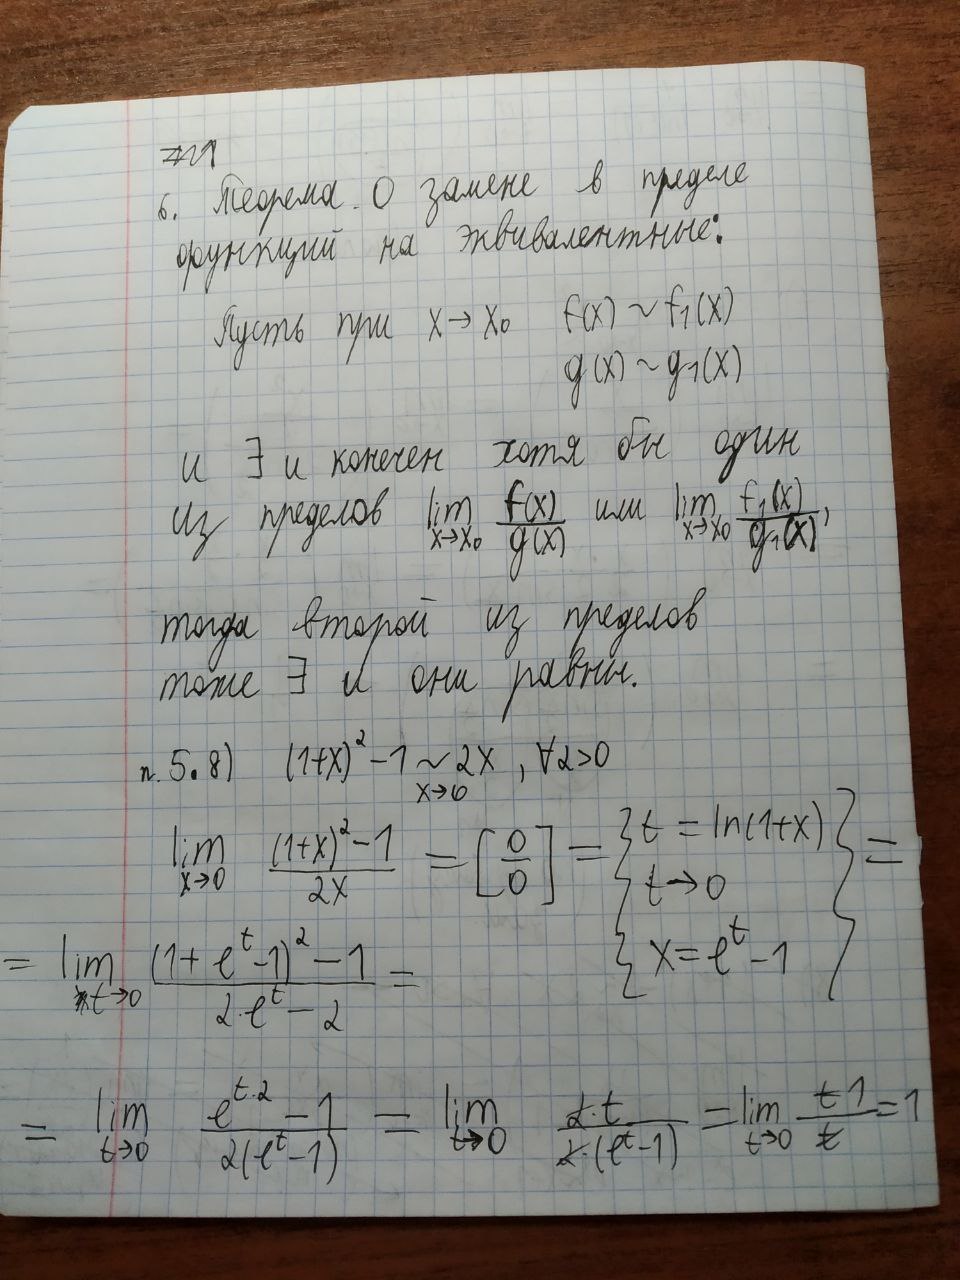 6. Теорема. О замене в пределе
функций на эквивалентные:
Пусть при x→x₀ f(x) ~ f₁(x)
g(x) ~ g₁(x)
и ∃ и конечен хотя бы один
из пределов lim x→x₀ f(x)/g(x) или lim x→x₀ f₁(x)/g₁(x),
тогда второй из пределов
тоже ∃ и они равны.
п. 5.8) (1+x)² - 1 ~ 2x, ∀2>0
x→0
lim x→0 ((1+x)² - 1)/2x = [0/0] = { t = ln(1+x)
t→0
x = eᵗ - 1 } =
= lim t→0 ((1 + eᵗ - 1)² - 1)/(2·eᵗ - 2) =
= lim t→0 (e^(t·2) - 1)/(2(eᵗ - 1)) = lim t→0 2·t/(2·(eᵗ - 1)) = lim t→0 t 1/t = 1